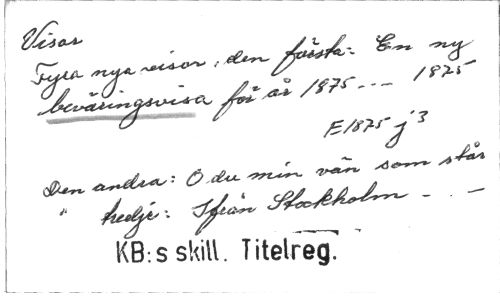 Visor
Fyra nya visor, den första: En ny
beväringsvisa för år 1875 --- 1875
E1875 j3
Den andra: O du min vän som står
" tredje: Ifrån Stockholm - -
KB:s skill. Titelreg.